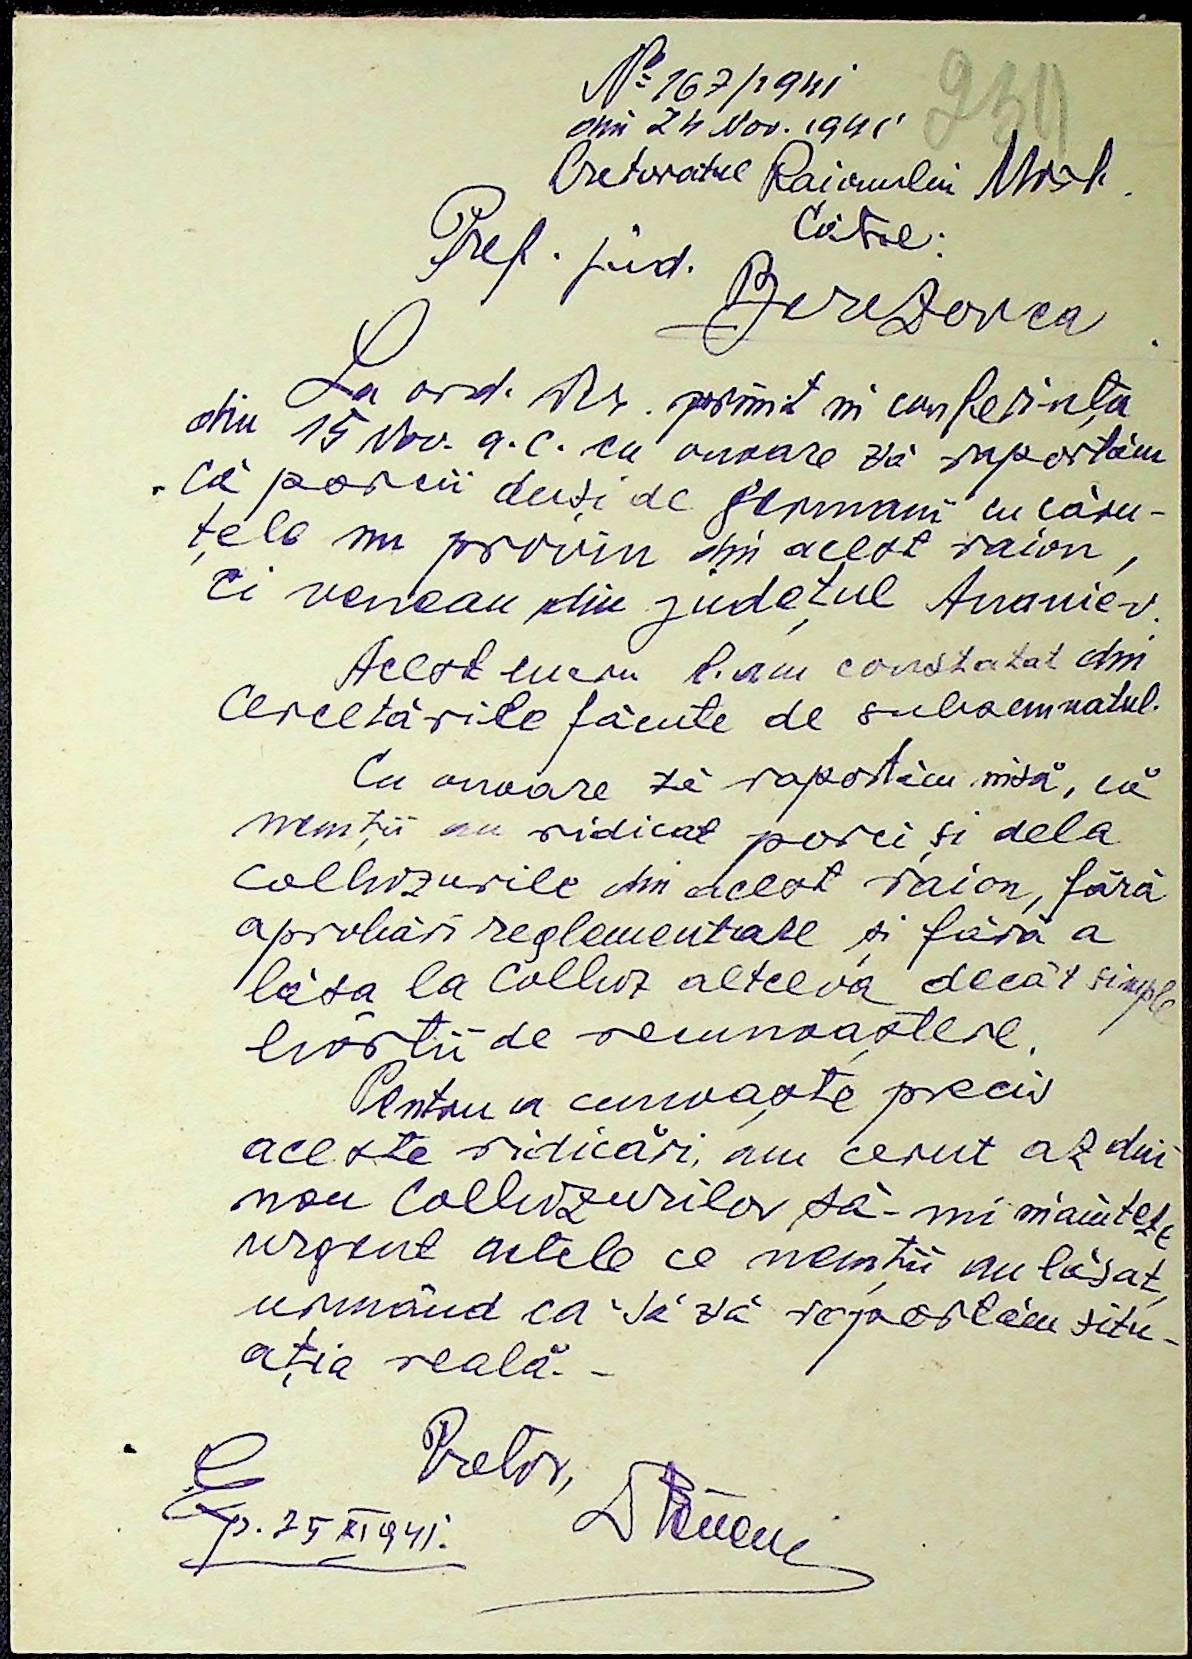 Nº 167/1941
din 24 Nov. 1941
Pretoratul Raionului Most.
Către:
Pref. jud.
Berezovca
La ord. Dvs. primit în conferința
din 15 Nov. a.c. cu onoare vă raportăm
că porcii duși de germani cu căru-
țele nu provin din acest raion,
ci veneau din județul Ananiev.
Acest lucru l-am constatat din
cercetările făcute de subsemnatul.
Cu onoare vă raportăm însă, că
nemții au ridicat porci și dela
colhozurile din acest raion, fără
aprobări reglementare și fără a
lăsa la colhoz altceva decât simple
hârtii de recunoaștere.
Pentru a cunoaște precis
aceste ridicări, am cerut az din
nou colhozurilor să-mi înainteze
urgent actele ce nemții au lăsat,
urmând ca să vă raportăm situ-
ația reală.-
Pretor,
Exp. 25 XI 941.